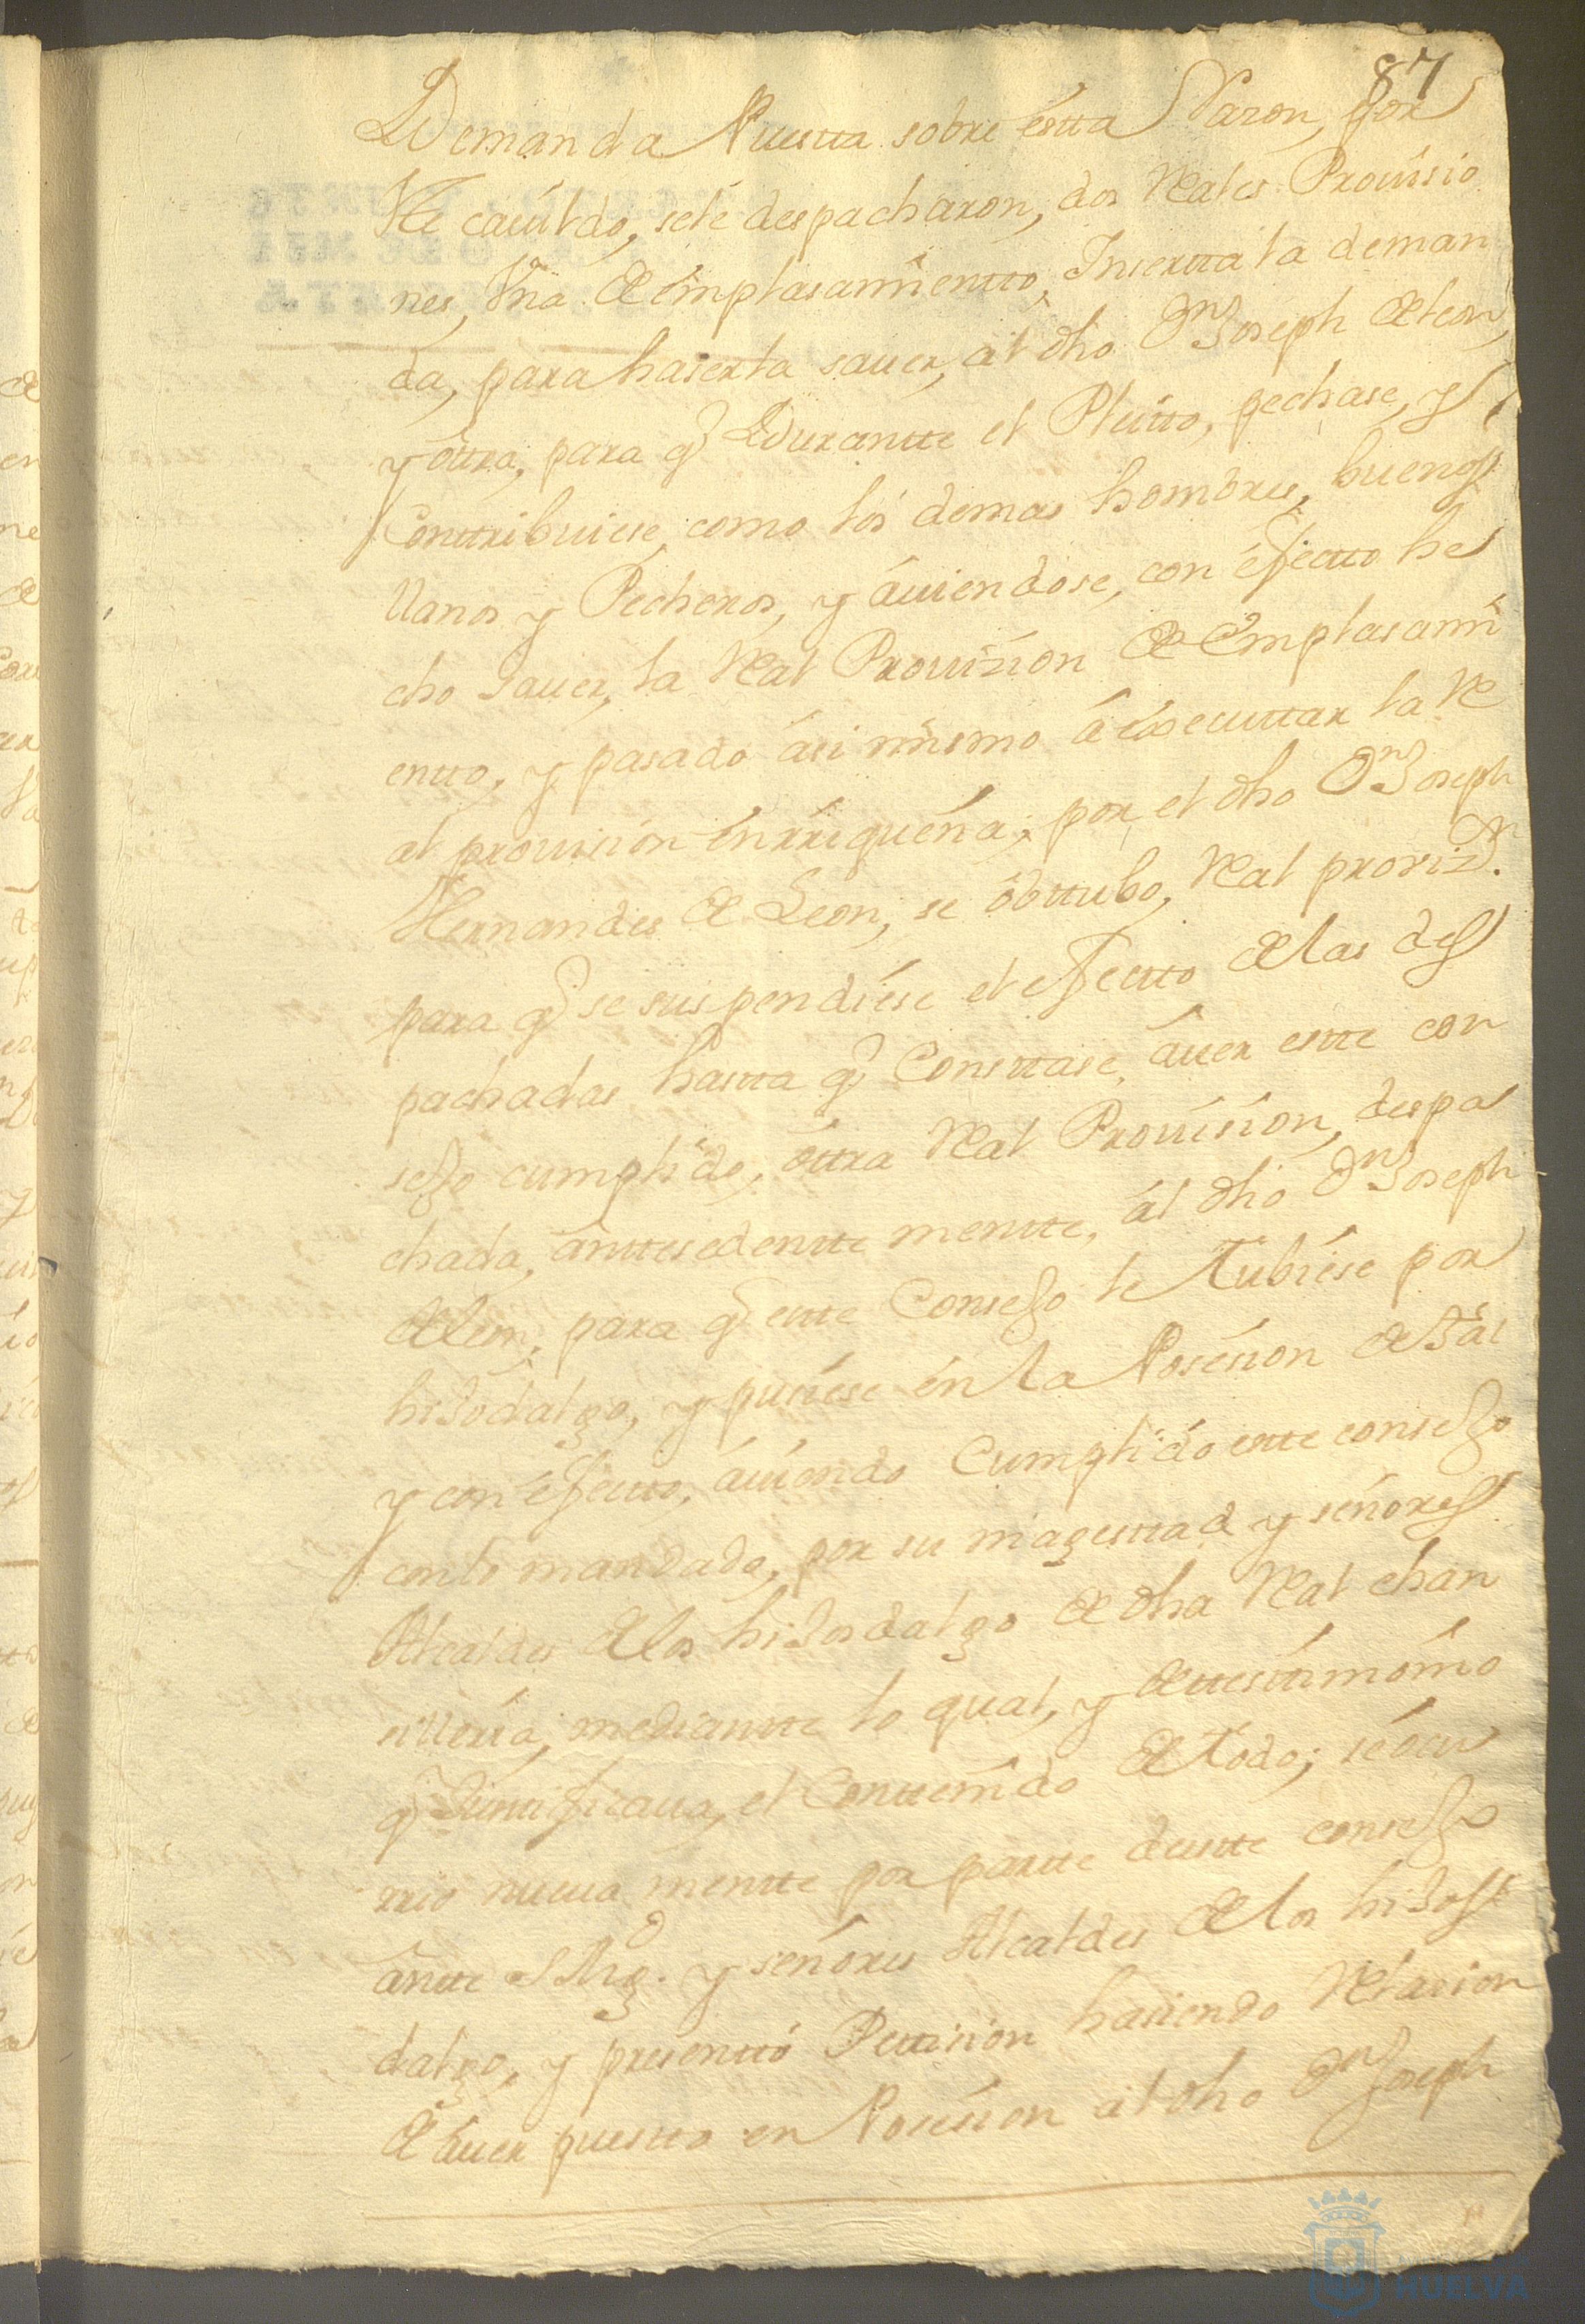 87
Demanda Puestta sobre estta Razon, por
Se cauildo, sele despacharon, dos Reales Prouisio
nes, Vna de emplasamientto, Inserta la deman
da, para haserla sauer, al dho Dn Joseph de leon,
y ottra, para q Durantte el Pleitto, pechase, y
Conttribuiese, como los demas hombres, buenos
llanos y Pecheros, y auiendose, con efectto he
cho Sauer, la Real Prouizion de Emplasami
entto, y pasado asi mismo a executtar la Re
al prouision enrriqueña; por el dho Dn Joseph
Hernandes de Leon, se obttubo, Real provizn.
para q se suspendiese el efectto de las des
pachadas hastta q Consttase, auer estte con
sejo cumplido, ottra Real Prouision, despa
chada, anttesedentte mentte, al dho Dn Joseph
de leon, para q estte Consejo le Tubiese por
hijodalgo, y pusiese en la Posesion de Tal
y con efectto, auiendo Cumplido estte consejo
con lo mandado, por su magesttad y señores
Alcaldes de los hijosdalgo de dha Real chan
silleria, mediantte lo qual, y de ttestimonio
q Justtificaua, el Conttenido de Todo; se ocu
rrio nueua mentte por partte de estte consejo
antte S Mgd. y señores Alcaldes de los hijos
dalgo, y presenttó Pettision hasiendo Relasion
de auer puestto en Posesion al dho Dn Joseph
HUELVA